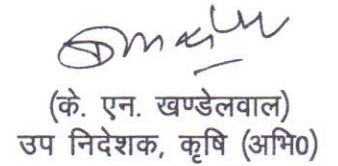 (के. एन. खण्डेलवाल)
उप निदेशक, कृषि (अभि0)